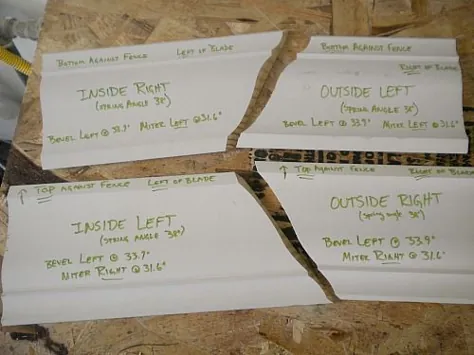 Bottom Against Fence Left of Blade
INSIDE RIGHT
(SPRING ANGLE 38°)
Bevel Left @ 33.9° Miter Left @ 31.6°
Bottom Against Fence
Right of Blade
OUTSIDE LEFT
(SPRING ANGLE 38°)
Bevel Left @ 33.9° Miter Left @ 31.6°
↑ Top Against Fence Left of Blade
INSIDE LEFT
(SPRING ANGLE 38°)
Bevel Left @ 33.9°
Miter Right @ 31.6°
↑ Top Against Fence Right of Blade
OUTSIDE RIGHT
(spring angle 38°)
Bevel Left @ 33.9°
Miter Right @ 31.6°